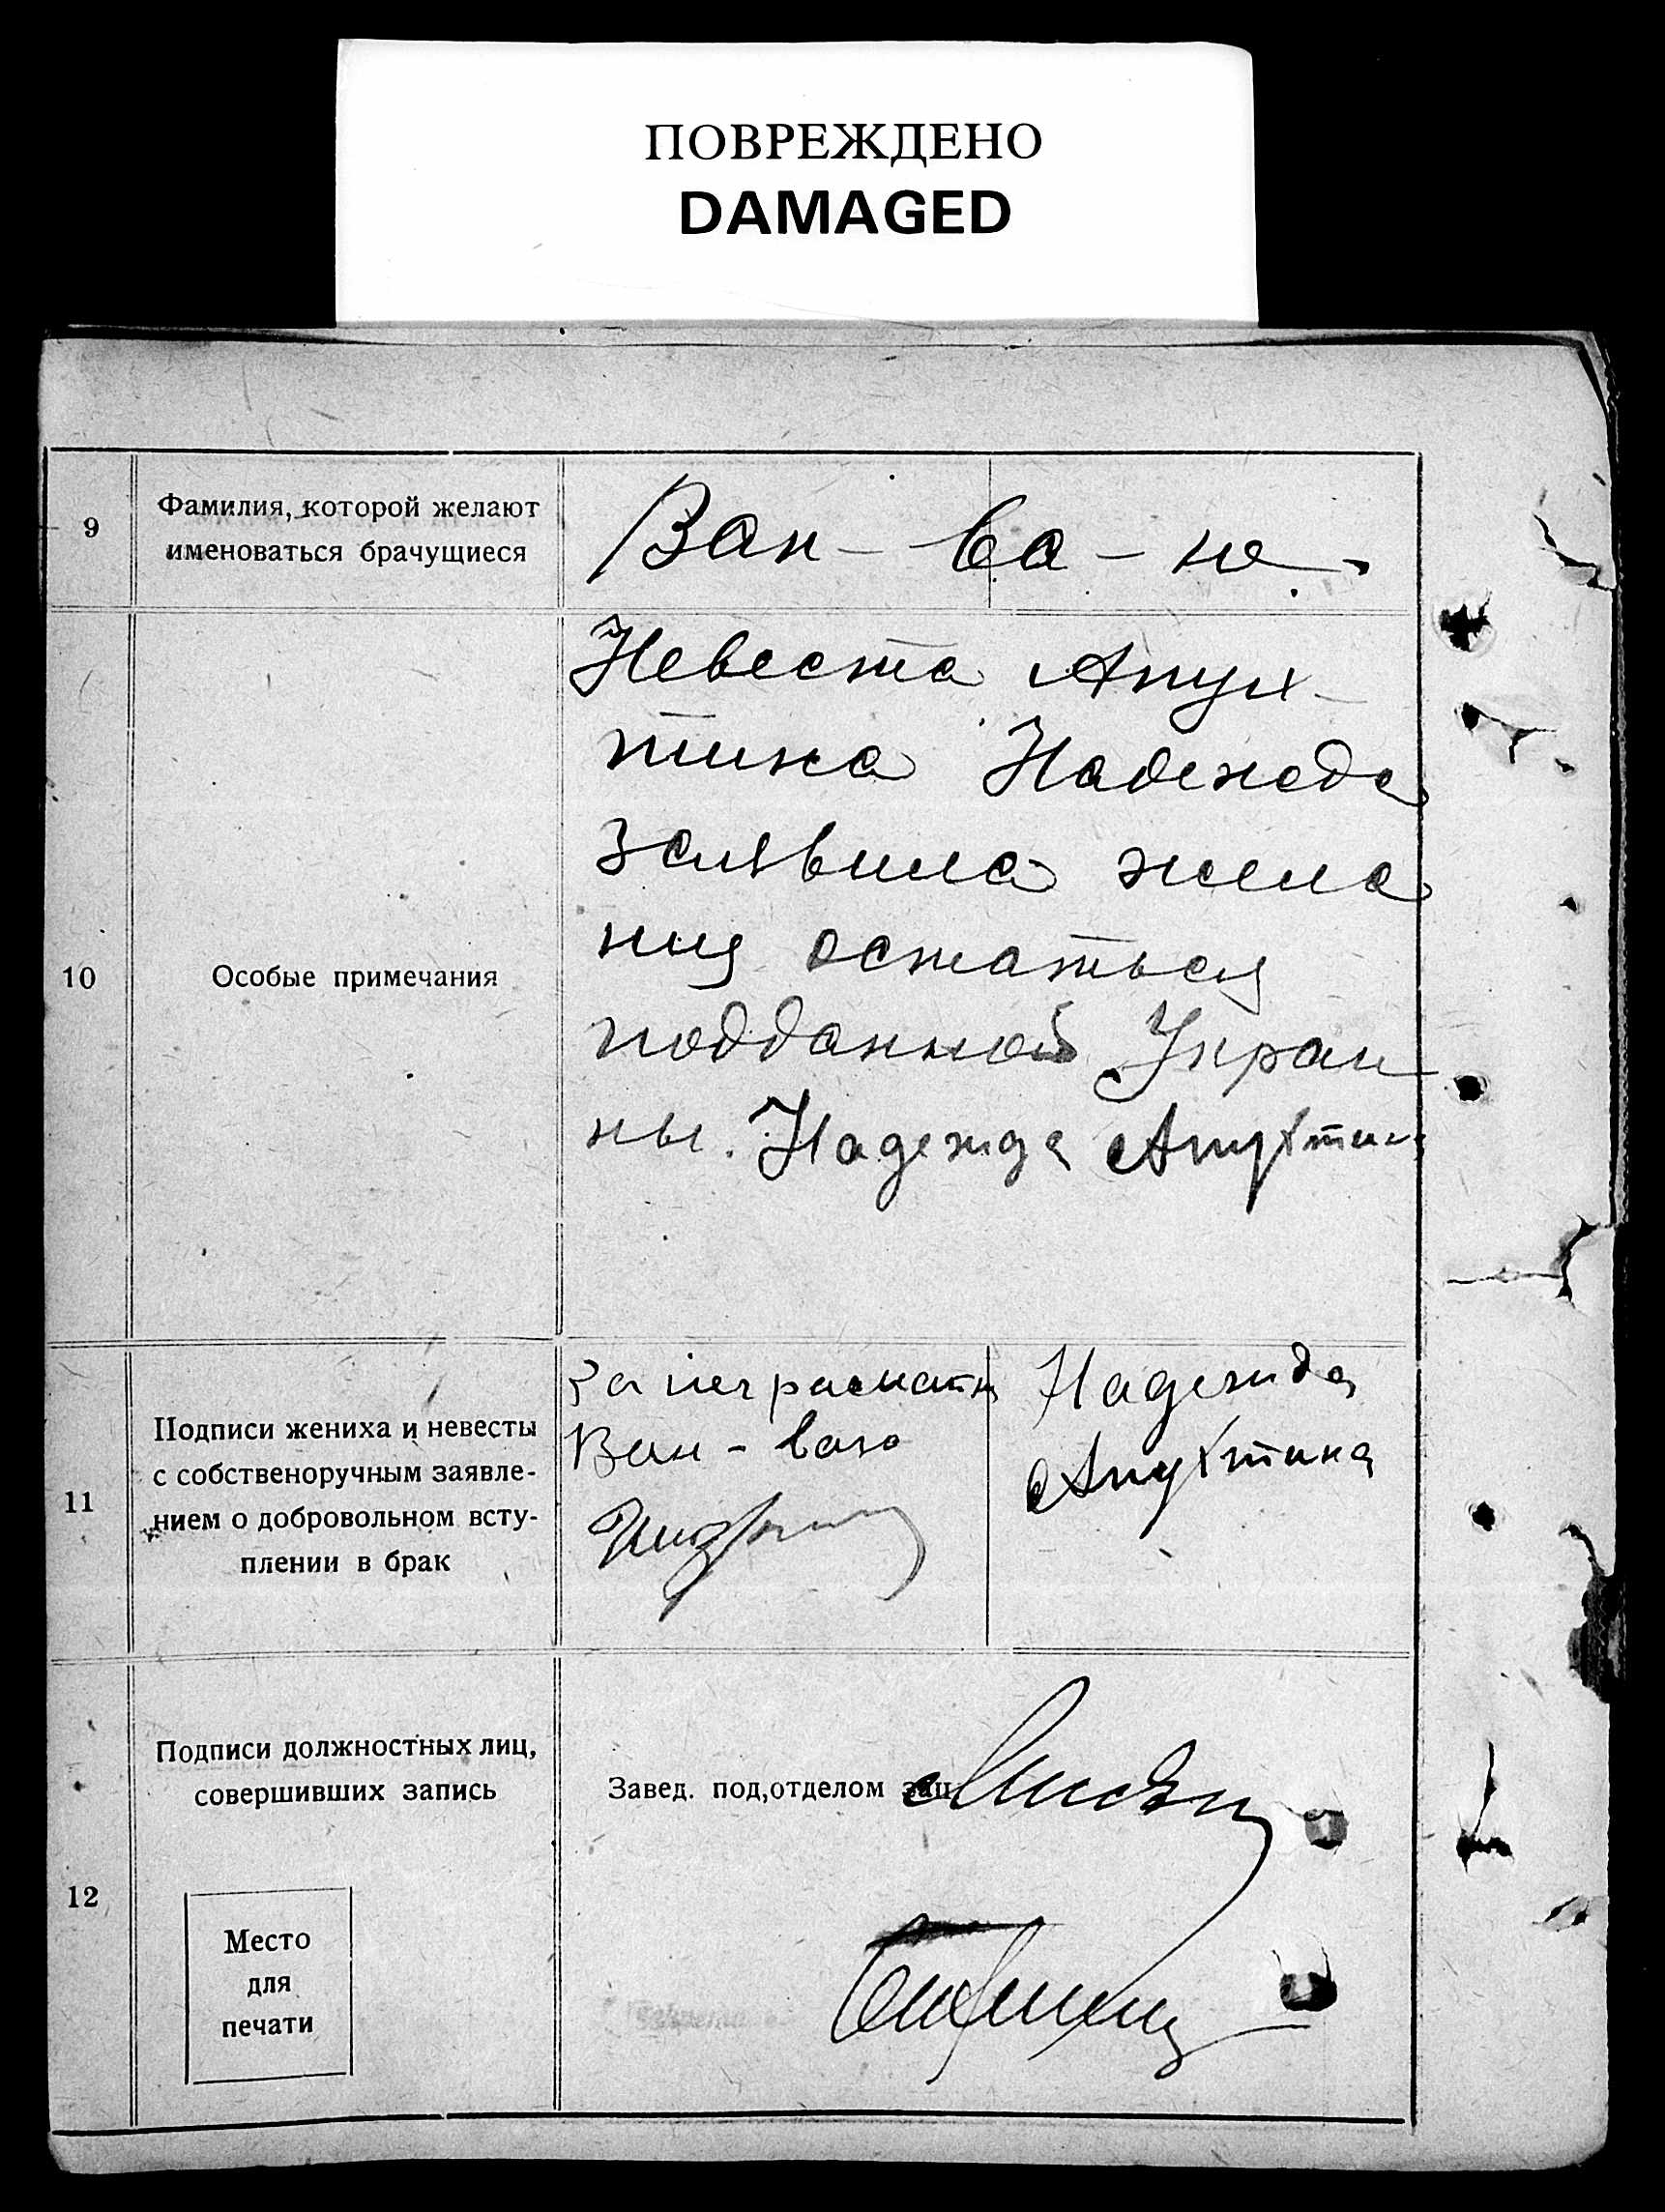 ПОВРЕЖДЕНО
DAMAGED
9
Фамилия, которой желают
именоваться брачущиеся
Ван - ва - ю
10
Особые примечания
Невеста Апух-
тина Надежда
заявила жела
ния остаться
подданной Украи
ны. Надежда Апухтина
11
Подписи жениха и невесты
с собственоручным заявле-
нием о добровольном всту-
плении в брак
За
Ван - ваю
Надежда
Апухтина
12
Подписи должностных лиц,
совершивших запись
Завед. под,отделом зап
Место
для
печати